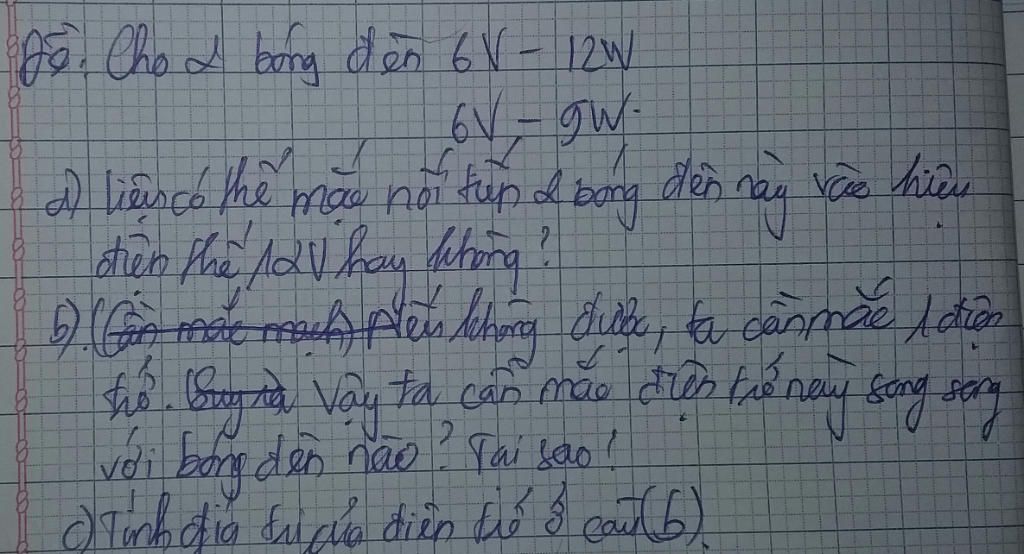 Đề: Cho 2 bóng đèn 6V - 12W
6V - 9W.
a) Liệu có thể mắc nối tiếp 2 bóng đèn này vào hiệu
điện thế 12V hay không?
b). (Cần mắc mạch) Nếu không được, ta cần mắc 1 điện
trở. Vậy ta cần mắc điện trở này song song
với bóng đèn nào? Tại sao!
c) Tính giá trị của điện trở ở câu (b)